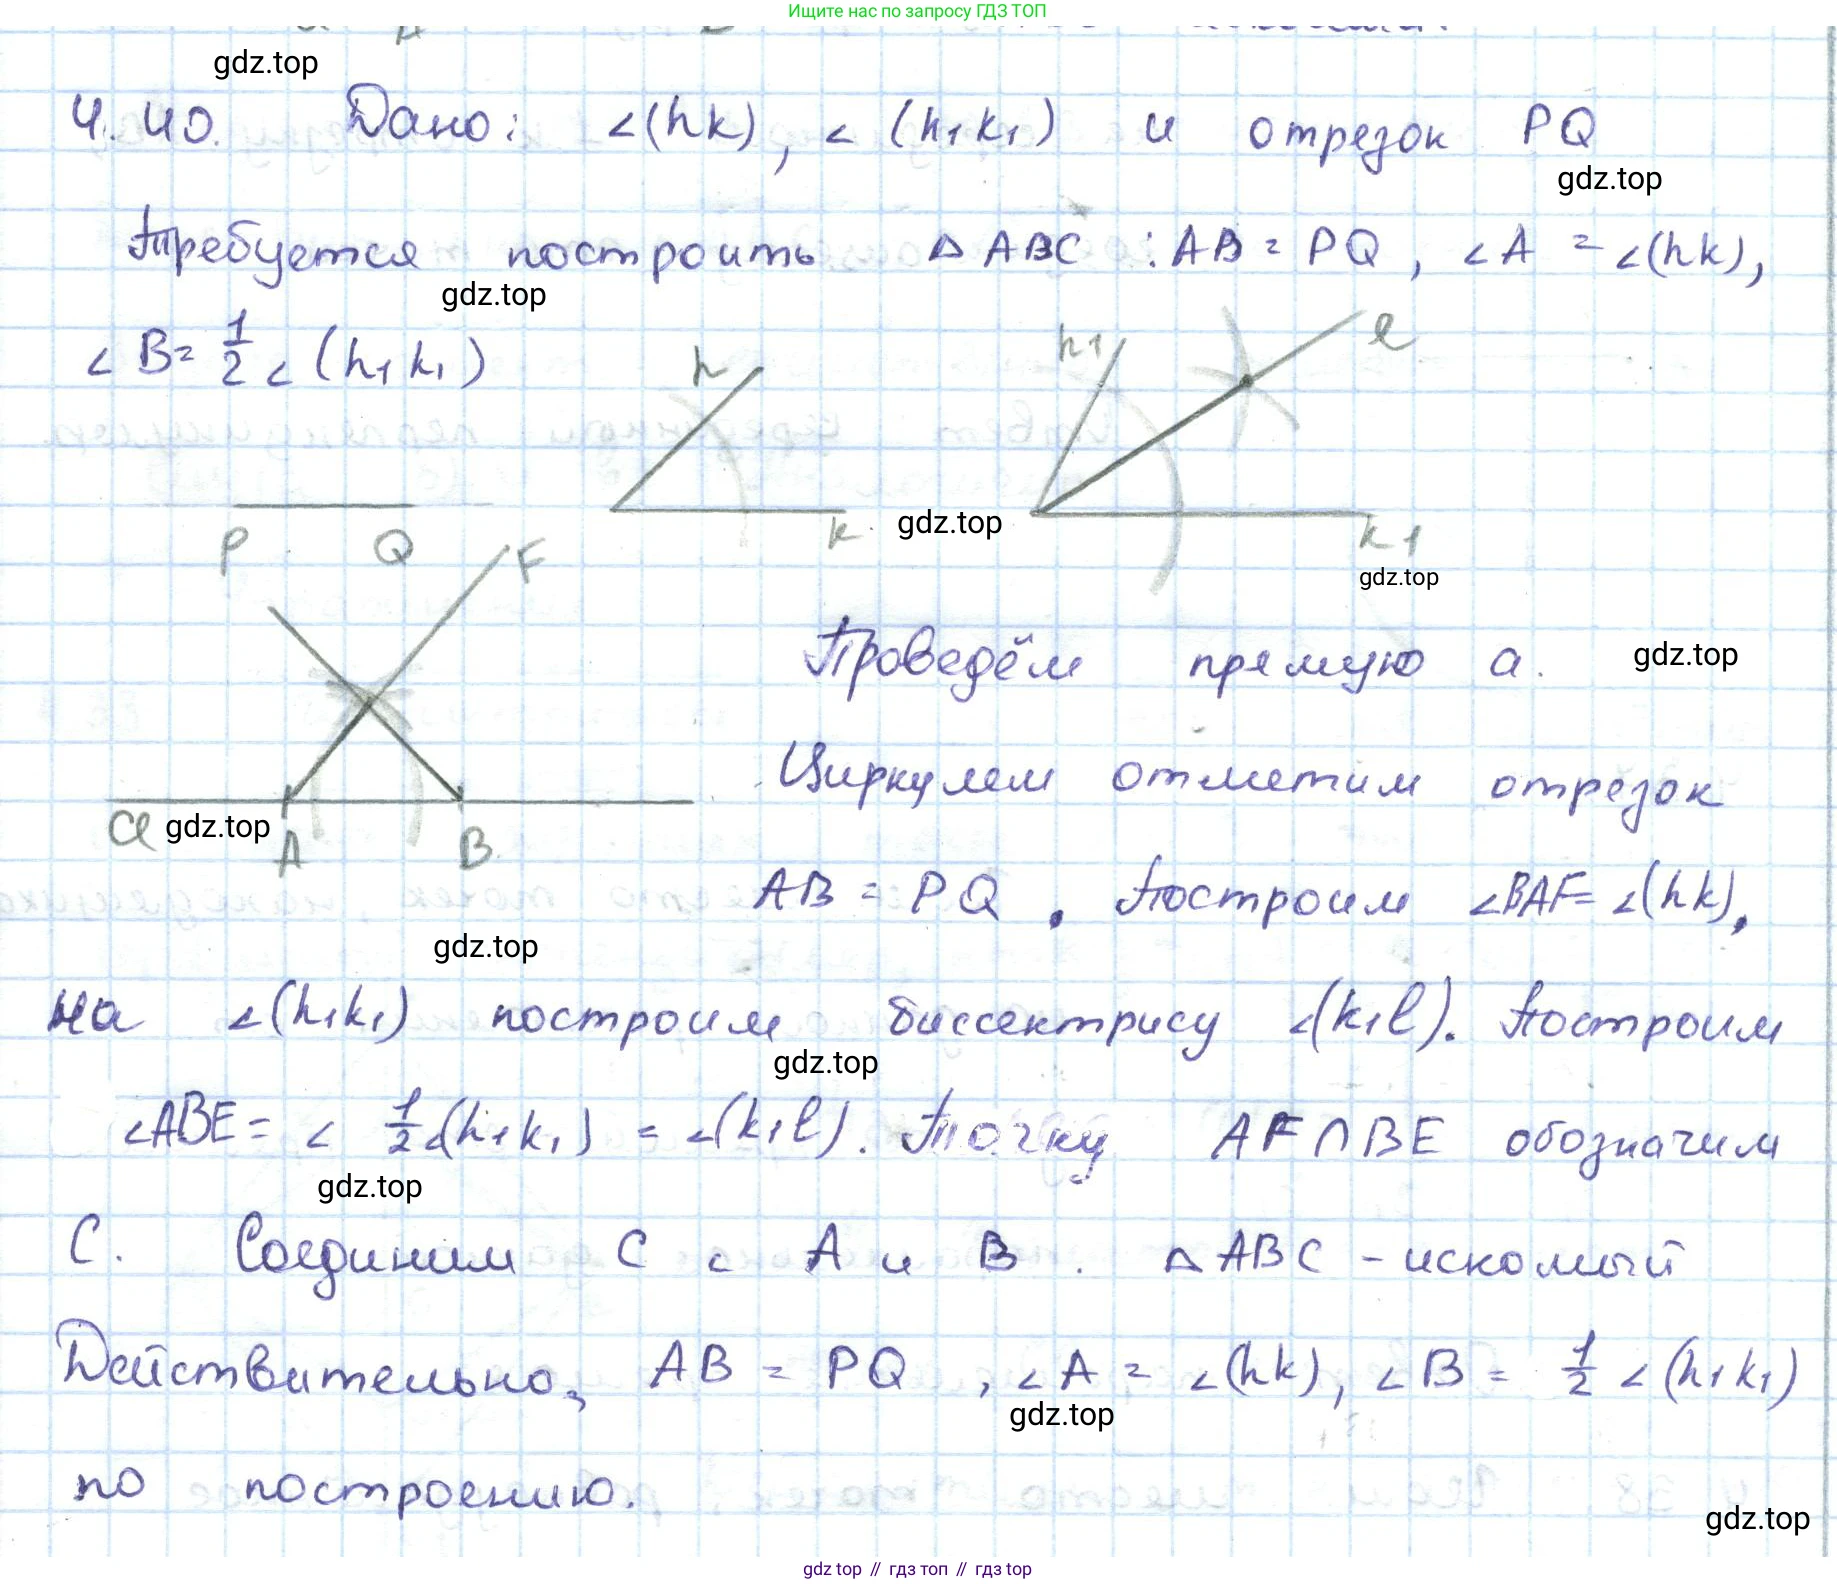 Ищите нас по запросу ГДЗ ТОП
gdz.top
4.40. Дано: ∠(hk), ∠(h₁k₁) и отрезок PQ
gdz.top
Требуется построить △ABC : AB = PQ, ∠A = ∠(hk),
gdz.top
∠B = 1/2 ∠(h₁k₁)
h
h1
l
P Q
k
gdz.top
k1
gdz.top
F
a
gdz.top
A B
Проведём прямую a.
gdz.top
Циркулем отметим отрезок
AB = PQ. Построим ∠BAF = ∠(hk),
gdz.top
на ∠(h₁k₁) построим биссектрису ∠(k₁l). Построим
gdz.top
∠ABE = ∠ 1/2 ∠(h₁k₁) = ∠(k₁l). Точку AF∩BE обозначим
gdz.top
C. Соединим C с A и B. △ABC - искомый
Действительно, AB = PQ, ∠A = ∠(hk), ∠B = 1/2 ∠(h₁k₁)
gdz.top
по построению.
gdz.top
gdz top // гдз топ // гдз top